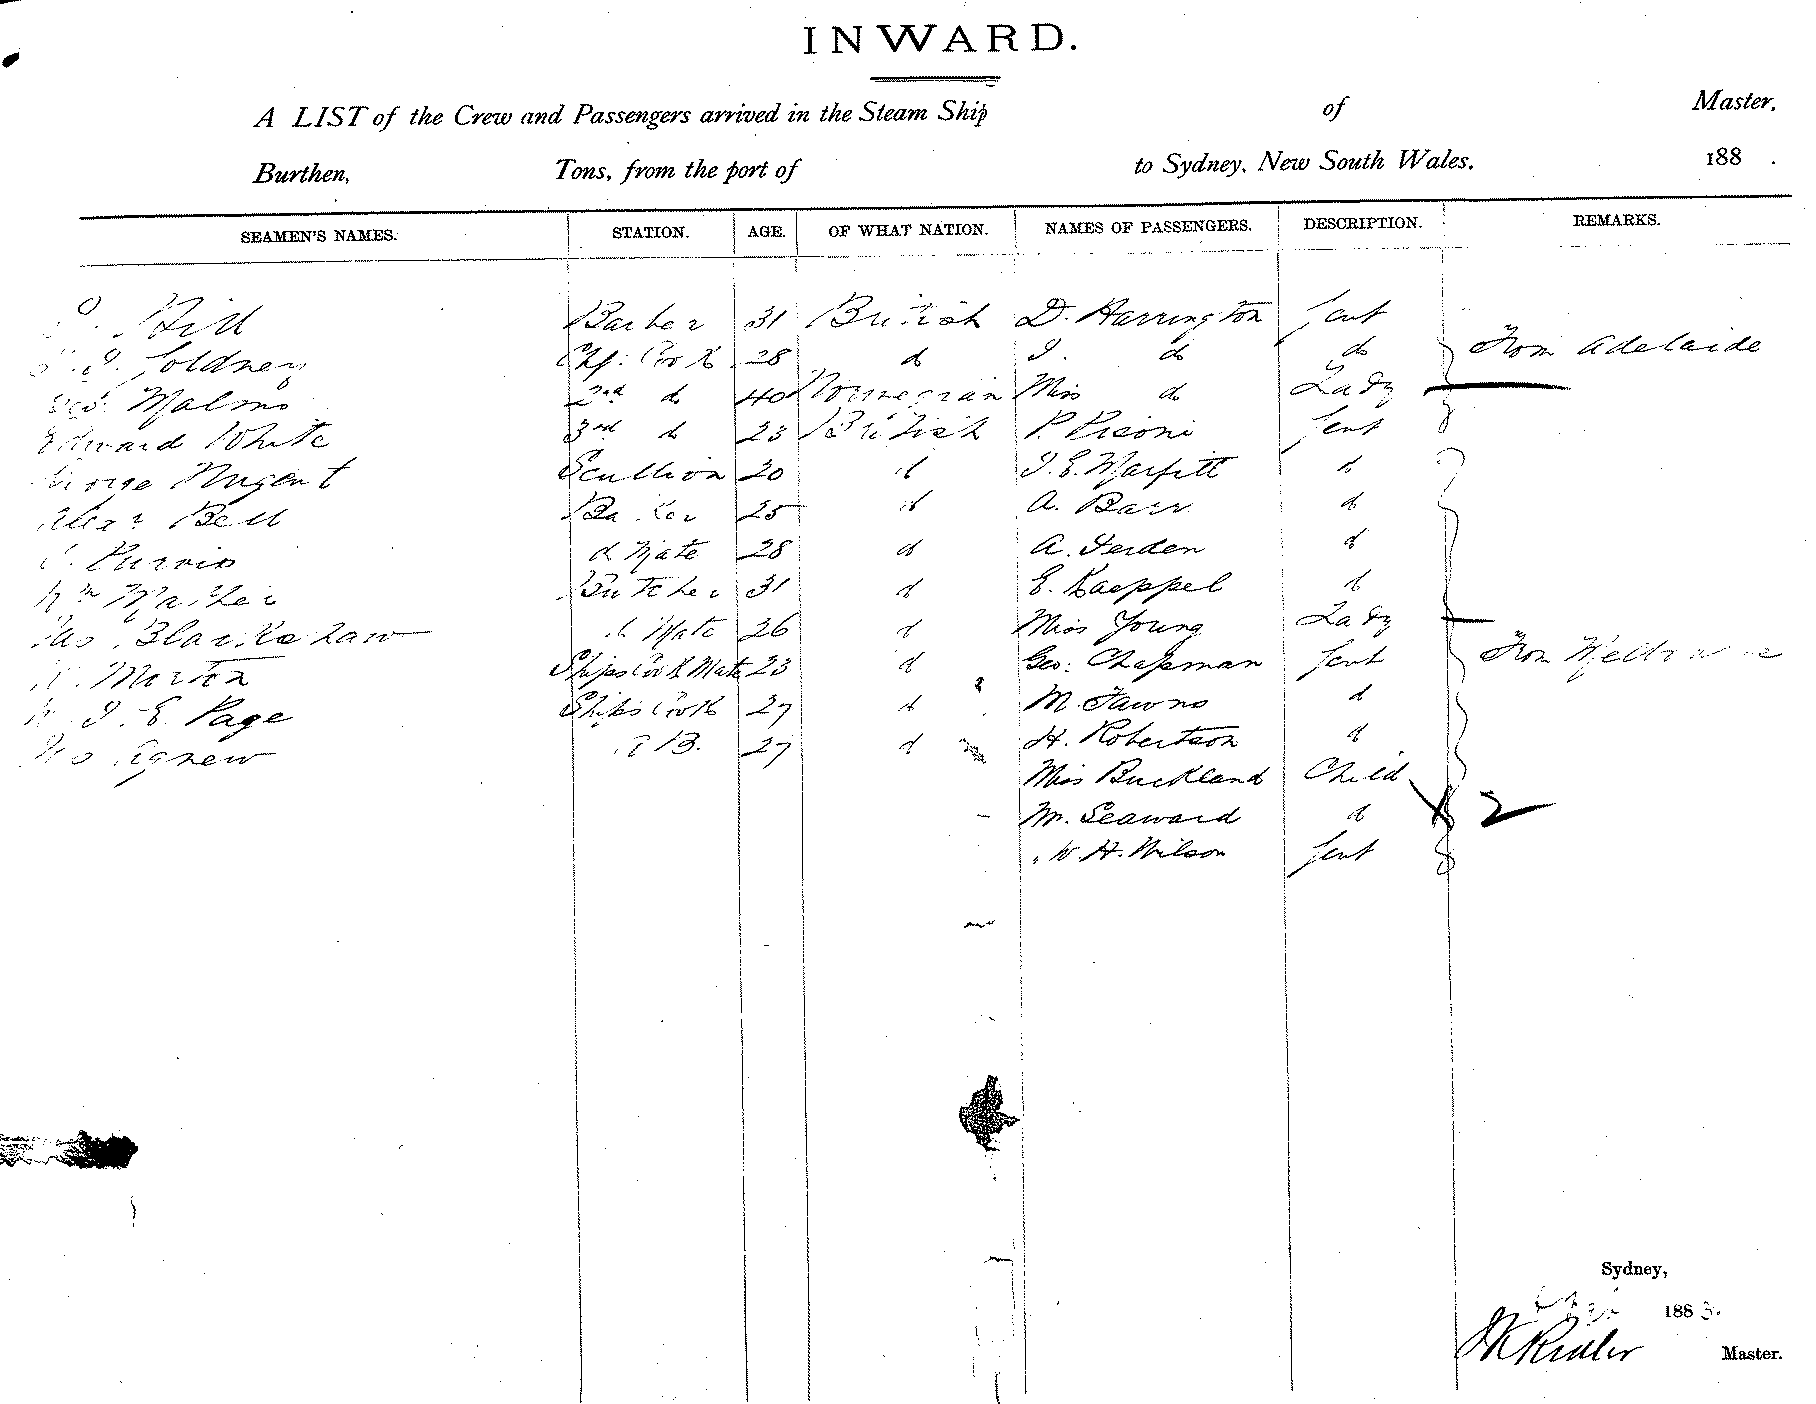 INWARD.
A LIST of the Crew and Passengers arrived in the Steam Ship of Master,
Burthen, Tons, from the port of to Sydney, New South Wales, 188 .
SEAMEN'S NAMES. STATION. AGE. OF WHAT NATION. NAMES OF PASSENGERS. DESCRIPTION. REMARKS.
Hill Barber 31 British D. Harrington Gent
Goldney Chf. Cook 28 do J. do do From Adelaide
Malmo 2nd do 40 Norwegian Miss do Lady
Edward White 3rd do 23 British P. Pisoni Gent
George Nugent Scullion 20 d J. E. Marfitt d
Alexr Bell Baker 25 d A. Barr d
Purvis d Mate 28 d A. Ferden d
Wm Butcher 31 d E. Kaeppel d
Jas. Blackshaw d Mate 26 d Miss Young Lady
Morton Ships Cook Mate 23 d Geo: Chapman Gent From Melbourne
J. E. Page Ships Cook 27 d M. Fawns d
Agnew A B. 27 d H. Robertson d
Miss Buckland Child
M. Seaward d 2
W. H. Wilson Gent
Sydney,
1883.
Master.